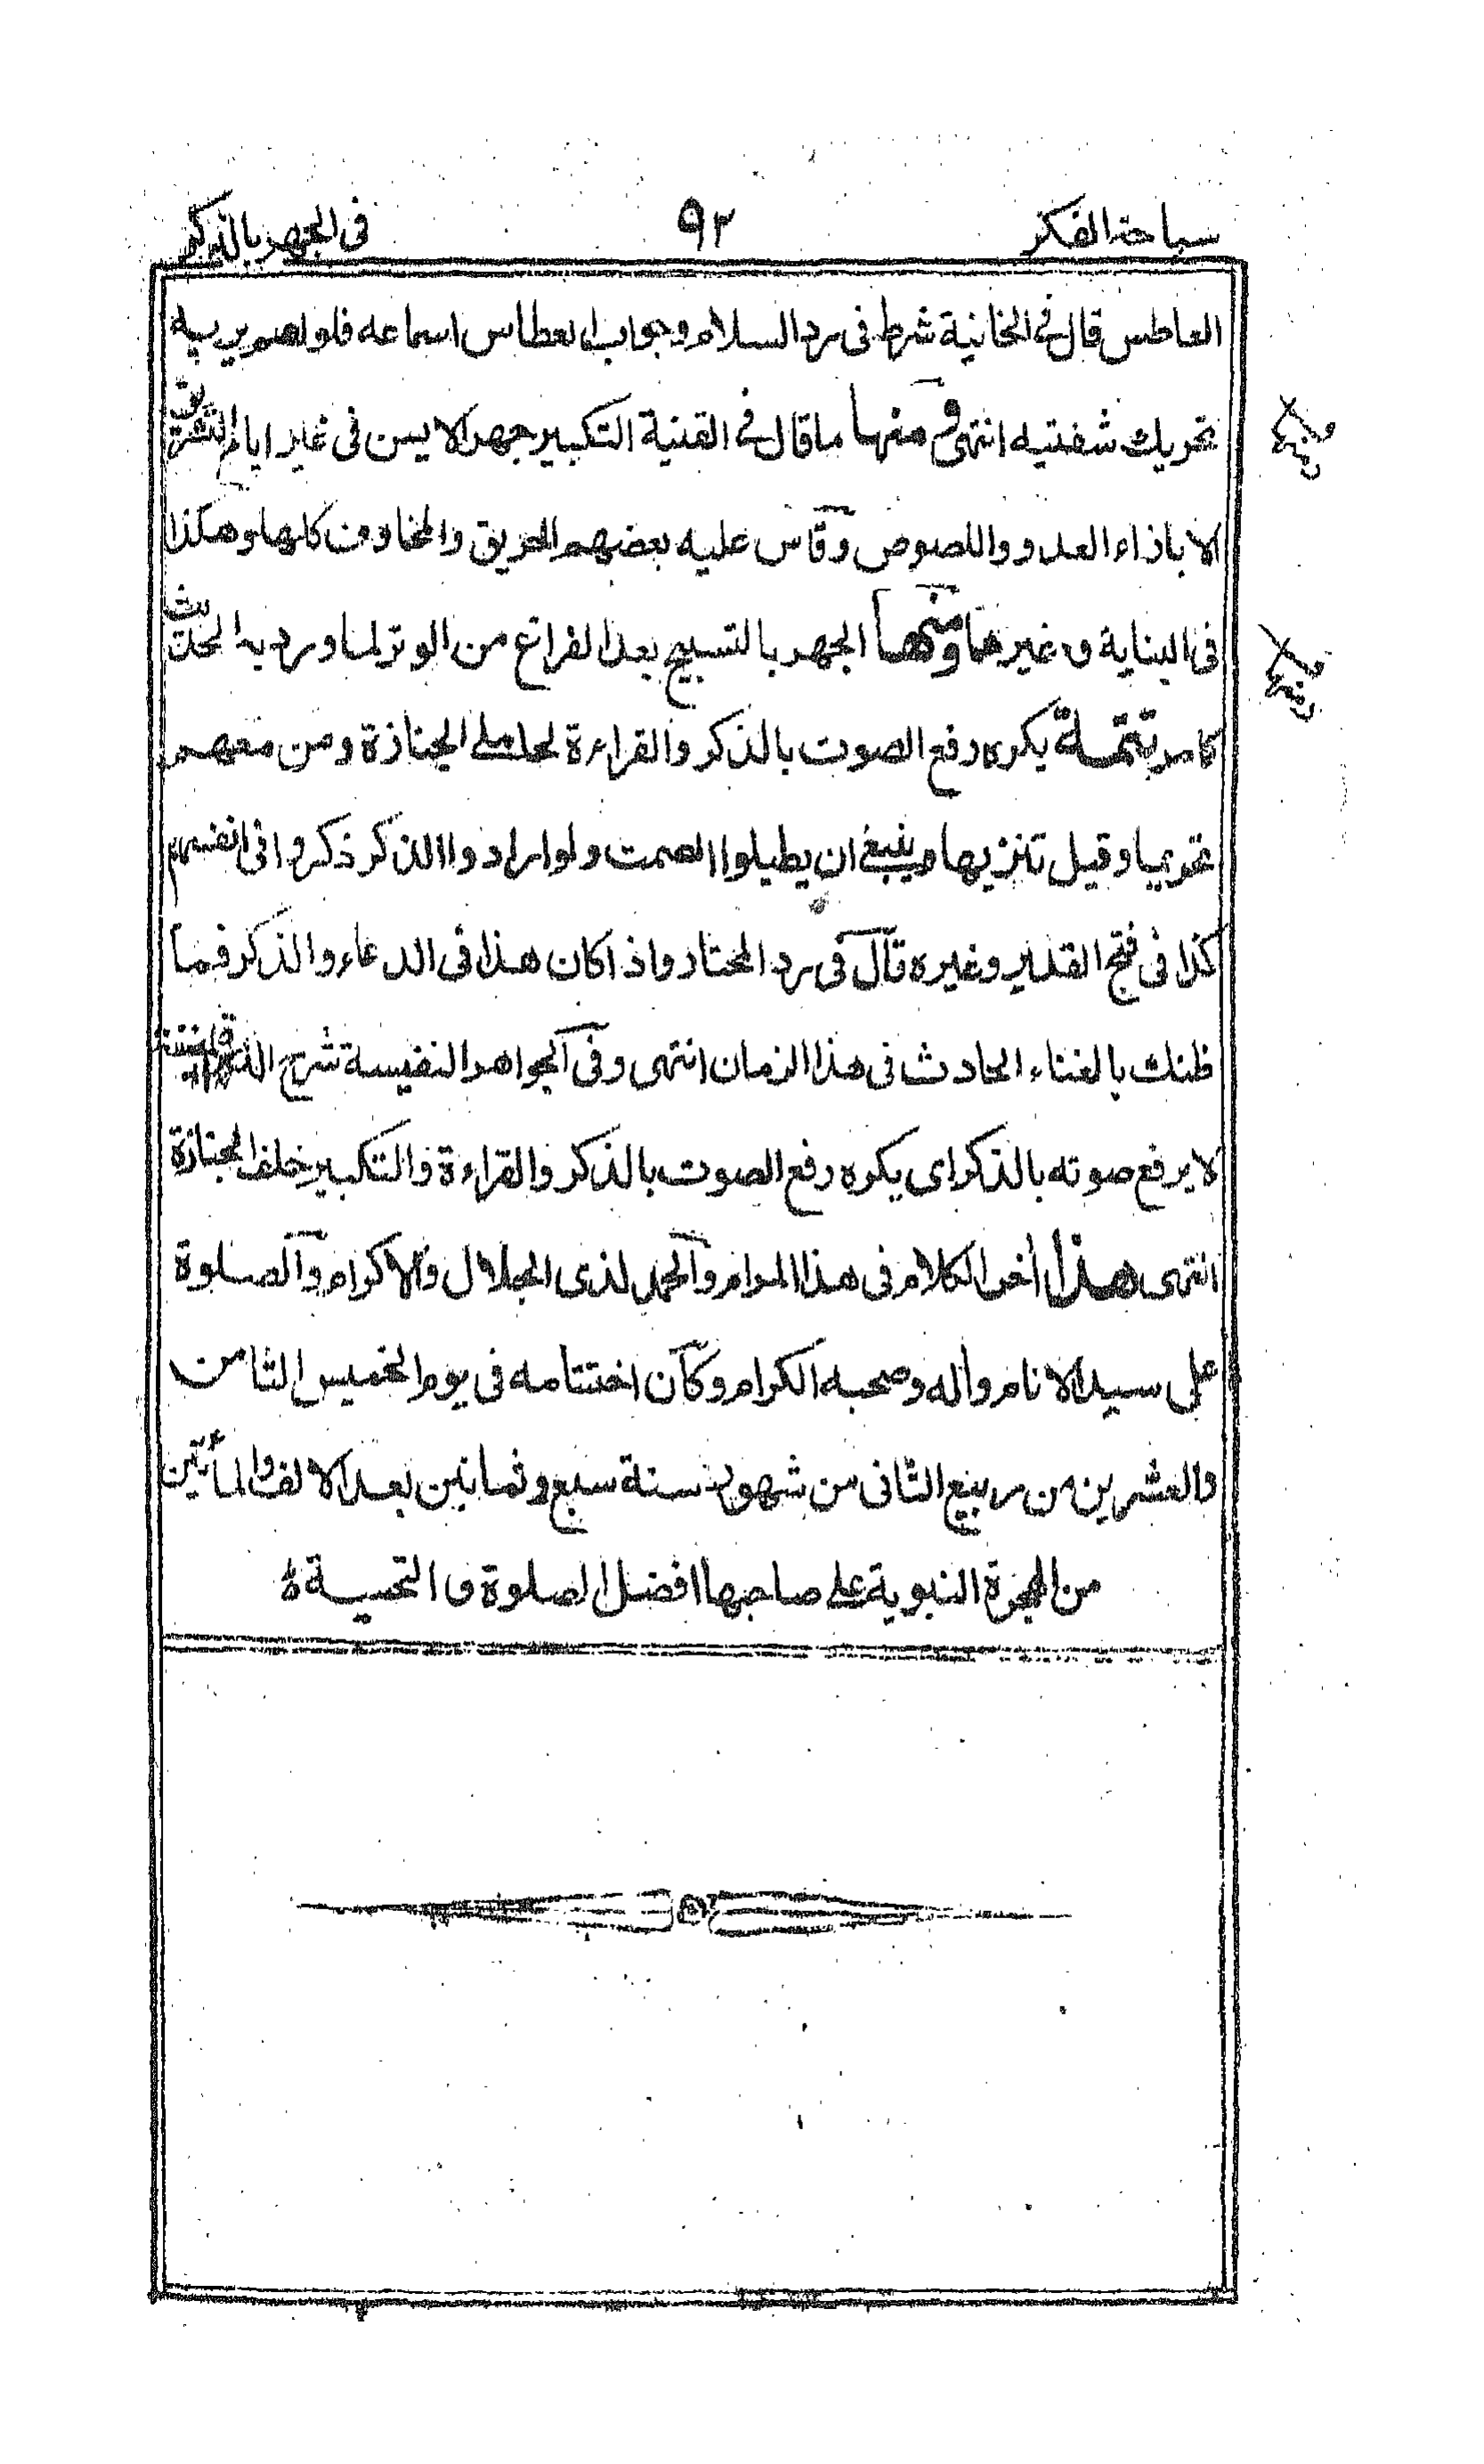 سباحة الفكر ٩٢ فى الجهر بالذكر
العاطس قال فى الخانية شرط فى رد السلام وجواب العطاس اسماعه فلو اصم يريه
تحريك شفتيه انتهى ومنها ما قال فى القنية التكبير جهرا لا يسن فى غير ايام التشريق
ومنها
الا باذاء العدو واللصوص وقاس عليه بعضهم الحريق والمخاوف كلها وهكذا
فى البناية وغيرهما ومنها الجهر بالتسبيح بعد الفراغ من الوتر لما ورد به الحديث
ومنها
كما مر تتمة يكره رفع الصوت بالذكر والقراءة لحاملى الجنازة ومن معهم
تحريما وقيل تنزيها وينبغى ان يطيلوا الصمت ولو ارادوا الذكر ذكروا فى انفسهم
كذا فى فتح القدير وغيره قال فى رد المحتار واذا كان هذا فى الدعاء والذكر فما
ظنك بالغناء الحادث فى هذا الزمان انتهى وفى الجواهر النفيسة شرح الدرة
لا يرفع صوته بالذكر اى يكره رفع الصوت بالذكر والقراءة والتكبير خلف الجنازة
انتهى هذا أخر الكلام فى هذا المرام والحمد لذى الجلال والاكرام والصلوة
على سيد الانام وأله وصحبه الكرام وكان اختتامه فى يوم الخميس الثامن
والعشرين من ربيع الثانى من شهور سنة سبع وثمانين بعد الالف والمأتين
من الهجرة النبوية على صاحبها افضل الصلوة والتحية